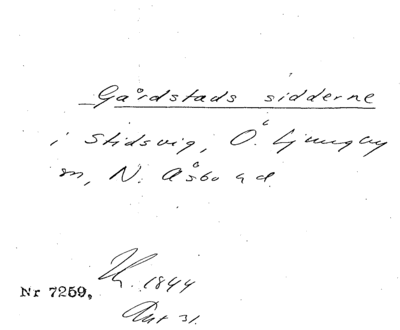 Gårdstads sidderne
i Stidsvig, Ö. Ljungby
sn, N. Åsbo hd.
Nr 7259,
1844
31.